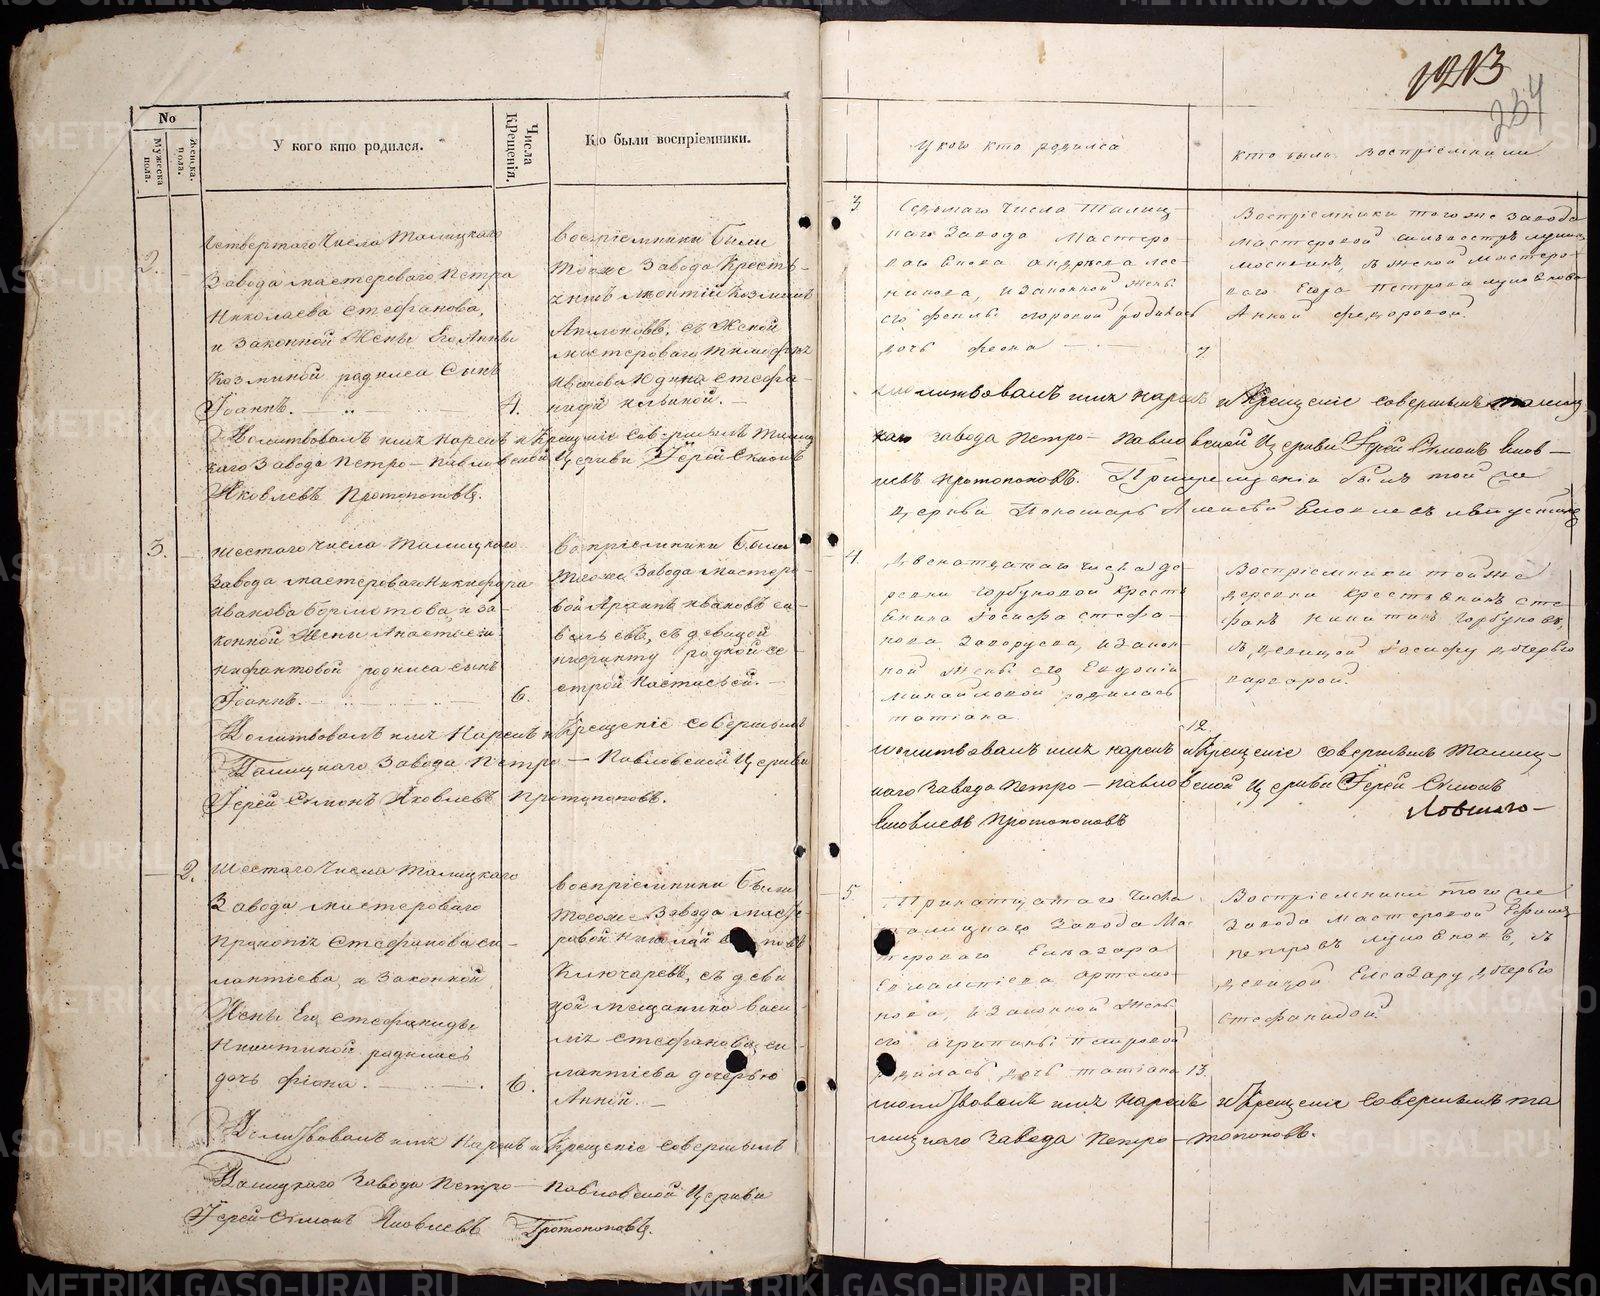 No
Мужеска пола.
Женска. пола.
У кого кто родился.
Числа крещенія.
Кто были воспріемники.
2.
Четвертаго Числа Талицкаго
Завода мастероваго Петра
Николаева Стефанова,
и Законной Жены Его Анны
Козминой родился Сынъ
Іоаннъ.
4.
воспріемники Были
тогоже Завода Кресть-
янинъ Козминъ
съ Женой
мастероваго Тимофея
Иванова Юдина Стефа-
нидой Ильиной.
Молитвовалъ имя Нарекъ и Крещеніе Совершилъ Талиц
каго Завода Петро-Павловской Церкви Іерей Симонъ
Яковлевъ Протопоповъ.
3.
шестаго Числа Талицкаго
Завода мастероваго Никифора
Иванова и за-
конной Жены Анастасіи
родился сынъ
Іоаннъ.
6.
воспріемники Были
тогоже Завода мастеро-
вой Ивановъ Са-
съ девицей
родной се-
строй Настасьей.
Молитвовалъ имя Нарекъ и Крещеніе совершилъ
Талицкаго Завода Петро-Павловской Церкви
Іерей Симонъ Яковлевъ Протопоповъ.
2.
Шестаго Числа Талицкаго
Завода мастероваго
Прокопія Стефанова Си-
лантіева, и Законной
Жены Его Стефаниды
Никитиной родилась
дочь фіона.
6.
воспріемники Были
тогоже Завода масте
ровой Николай
Ключаревъ, съ деви
цой мещанина Васи-
лія Стефанова Си-
лантіева дочерью
Анной.
Молитвовалъ имя Нарекъ и Крещеніе совершилъ
Талицкаго Завода Петро-Павловской Церкви
Іерей Симонъ Яковлевъ Протопоповъ.
1213
234
У кого кто родился
кто были Воспріемники
3
Седьмаго Числа Талиц-
каго Завода Мастеро-
ваго Якова Андреева Лес-
никова, и Законной Жены
его Феклы Егоровой родилась
дочь феона
7.
Воспріемники того же завода
мастеровой
съ Женой мастеро-
ваго Егора Петрова Луновскова
Анной федоровой.
молитвовалъ имя нарекъ и Крещеніе совершилъ Талиц
каго завода Петро-Павловской Церкви Іерей Симонъ Яков-
левъ Протопоповъ. При крещеніи былъ той же
Церкви Пономарь Алексей Яковлевъ
4.
Двенатцатаго числа де-
ревни Горбуновой Кресть
янина Іосифа Стефа-
нова и Закон-
ной Жены его Евдокіи
Михайловой родилась
Татіана.
12.
Воспріемники тойже
деревни крестьянинъ Сте-
фанъ Никитинъ Горбуновъ,
съ девицой Іосифу дочерью
варварой.
молитвовалъ имя нарекъ и Крещеніе совершилъ Талиц-
каго Завода Петро-Павловской Церкви Іерей Симонъ
Яковлевъ Протопоповъ
5.
Тринатцатаго Числа
Талицкаго Завода Ма-
стероваго Елеазара
Евлампіева Артамо-
нова, и Законной Жены
его Агрипины Петровой
родилась дочь татіана
13.
Воспріемники того же
Завода мастеровой
Петровъ съ
девицой Елеазару дочерью
Стефанидой
молитвовалъ имя нарекъ и Крещеніе Совершилъ Та
лицкаго Завода Петро-топоповъ.
METRIKI.GASO-URAL.RU